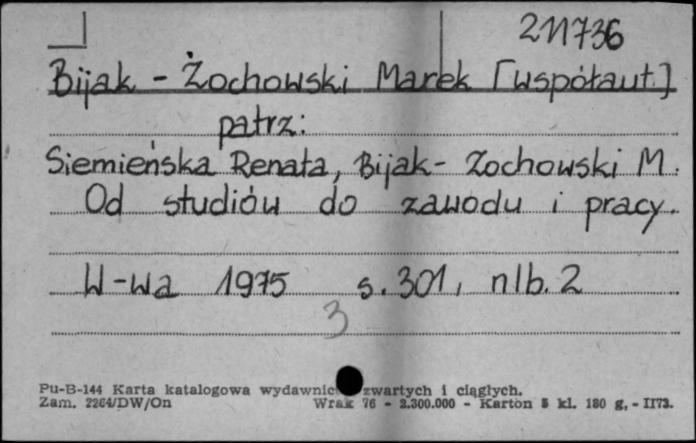 211736
Bijak - Żochowski Marek [współaut.]
patrz:
Siemieńska Renata, Bijak- Żochowski M.
Od studiów do zawodu i pracy.
W-wa 1975 s. 301, nlb. 2
3
Pu-B-144 Karta katalogowa wydawnic zwartych i ciągłych.
Zam. 2264/DW/On Wrak 76 - 2.300.000 - Karton 5 kl. 180 g, - II73.